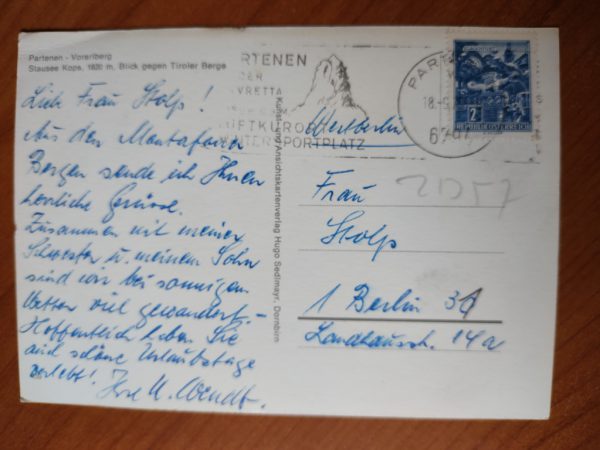 Partenen - Vorarlberg
Stausee Kops, 1820 m, Blick gegen Tiroler Berge
Liebe Frau Stolp !
Aus den Montafoner
Bergen sende ich Ihnen
herzliche Grüsse.
Zusammen mit meiner
Schwester u. meinem Sohn
sind wir bei sonnigem
Wetter viel gewandert. -
Hoffentlich haben Sie
auch schöne Urlaubstage
verlebt!
Wendt.
Kunst- und Ansichtskartenverlag Hugo Sedlmayr, Dornbirn
RTENEN
DER
VRETTA
FTKURO
INTERSPORTPLATZ
PART
18.-9.
67
2
REPUBLIK ÖSTERREICH
Westberlin
Frau
Stolp
1 Berlin 31
Landhausstr. 14a